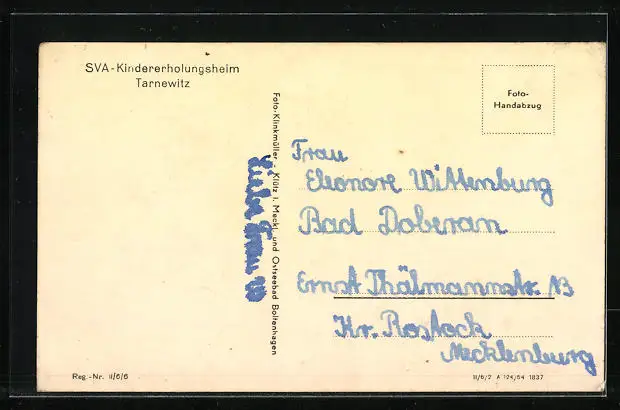 SVA-Kindererholungsheim
Tarnewitz
Foto-Handabzug
Foto-Klinkmüller - Klütz i. Meckl. und Ostseebad Boltenhagen
Liebe Frau W
Frau
Eleonore Wittenburg
Bad Doberan
Ernst Thälmannstr. 13
Kr. Rostock
Mecklenburg
Reg.-Nr. II/6/6
II/6/2 A 124/54 1837